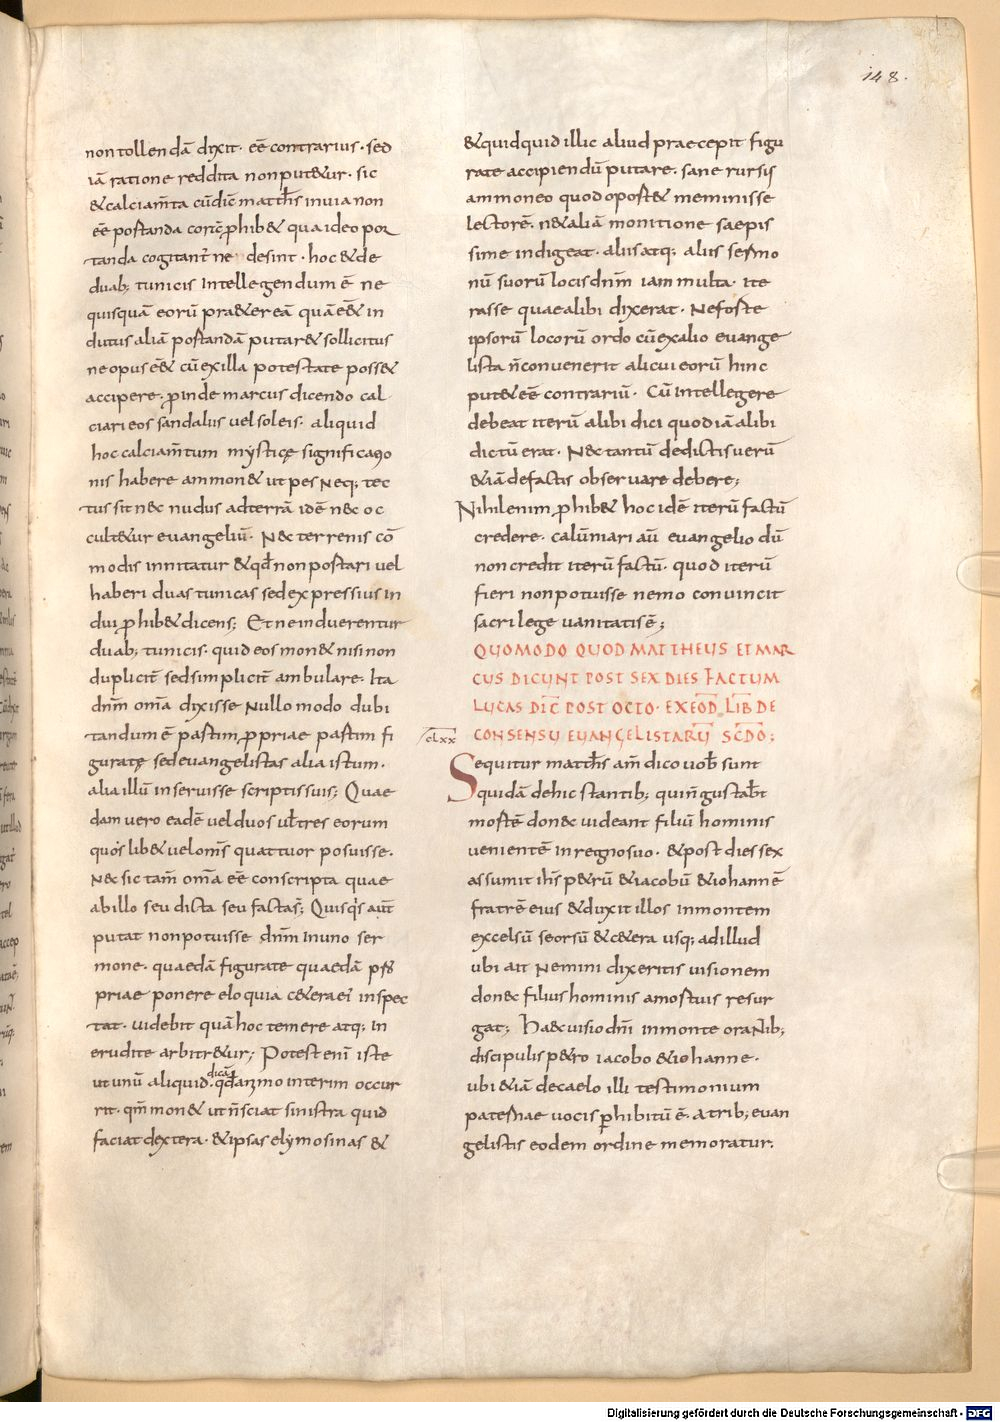 148.
non tollendā dixit· eē contrarius· sed
iā ratione reddita non put&ur· sic
& calciam̄ta cū dic̄ matth̄s in uia non
eē portanda cor̄ ꝓhib& qua ideo por
tanda cogitant̄ ne desint· hoc & de
duab; tunicis intellegendum ē ne
quisquā eorū pra&er eā quā eēt in
dutus aliā portandā putar& sollicitus
ne opus eē& cū ex illa potestate poss&
accipere· ꝓinde marcus dicendo cal
ciari eos sandaliis uel soleis· aliquid
hoc calciam̄tum mysticę significatio
nis habere ammon& ut pes neq; tec
tus sit nec nudus ad terrā idē nec oc
cult&ur euangeliū· Nec terrenis cō
modis innitatur & qđ non portari uel
haberi duas tunicas sed expressius in
dui ꝓhib& dicens; Et ne induerentur
duab; tunicis· quid eos mon& nisi non
duplicit̄ sed simplicit̄ ambulare· Ita
dn̄m om̄a dixisse nullo modo dubi
tandum ē partim ꝓpriae partim fi
guratę sed euangelistas alia istum·
alia illū inseruisse scriptis suis; Quae
dam uero eadē uel duos uł tres eorum
quos lib& uel om̄s quattuor posuisse·
Nec sic tam̄ om̄a eē conscripta quae
ab illo seu dicta seu facta s̄; Quisq̇s aut̄
putat non potuisse dn̄m in uno ser
mone· quaedā figurate quaedā pro
priae ponere eloquia c&era ei inspec
tat· uidebit quā hoc temere atq; in
erudite arbitr&ur; Potest eni iste
dicā
ut unū aliquid· qđ annmo interim occur
rit· qm̄ mon& ut n̄ sciat sinistra quid
faciat dextera· & ipsas elymosinas &
& quidquid illic aliud praecepit figu
rate accipiendū putare· sane rursis
ammoneo quod oport& meminisse
lectorē· ne& aliā monitione saepis
sime indigeat· aliis atq; aliis sermo
nū suorū locis dn̄m iam multa· ite
rasse quae alibi dixerat· Ne forte
ipsorū locorū ordo cū ex alio euange
lista n̄ conuenerit alicui eorū hinc
put& eē contrariū· Cū intellegere
debeat iterū alibi dici quod iā alibi
dictū erat· Nec tantū de dictis uerū
&iā de factis obseruare debere;
Nihil enim ꝓhib& hoc idē iterū factū
credere· calūniari aū euangelio dū
non credit iterū factū· quod iterū
fieri non potuisse nemo conuincit
sacrilege uanitatis ē;
QUOMODO QUOD MATTHEUS ET MAR
CUS DICUNT POST SEX DIES FACTUM
LUCAS DIC̄ POST OCTO· EX EOD̄ LIB̄ DE
CONSENSU EUANGELISTARŪ SC̄DO;
clxx
Sequitur matth̄s am̄ dico uob̄ sunt
quidā de hic stantib; qui n̄ gustab̄t
mortē donec uideant filiū hominis
uenientē in regno suo· & post dies sex
assumit ih̄s p&rū & iacobū & iohannē
fratrē eius & duxit illos in montem
excelsū seorsū & c&era usq; ad illud
ubi ait nemini dixeritis uisionem
donec filius hominis a mortuis resur
gat; Haec uisio dn̄i in monte orantib;
discipulis p&ro iacobo & iohanne·
ubi &iā de caelo illi testimonium
paternae uocis ꝓhibitū ē· a trib; euan
gelistis eodem ordine memoratur·
Digitalisierung gefördert durch die Deutsche Forschungsgemeinschaft - DFG